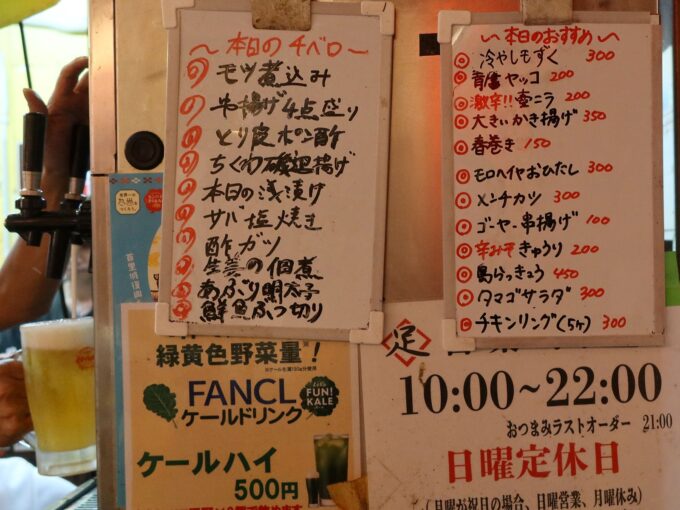 〜本日のチベロ〜
モツ煮込み
串揚げ4点盛り
とり皮水の酢
ちくわ磯辺揚げ
本日の浅漬け
サバ塩焼き
酢ガツ
生姜の佃煮
あぶり明太子
鮮魚ぶつ切り
〜本日のおすすめ〜
冷やしもずく 300
ヤッコ 200
激辛!!壺ニラ 200
大きぃかき揚げ 350
春巻き 150
モロヘイヤおひたし 300
メンチカツ 300
ゴーヤー串揚げ 100
辛みそきゅうり 200
島らっきょう 450
タマゴサラダ 300
チキンリング(5ヶ) 300
緑黄色野菜量*!
FANCL
ケールドリンク
Let's
FUN!
KALE
ケールハイ
500円
足
10:00~22:00
おつまみラストオーダー 21:00
日曜定休日
(日曜が祝日の場合、日曜営業、月曜休み)